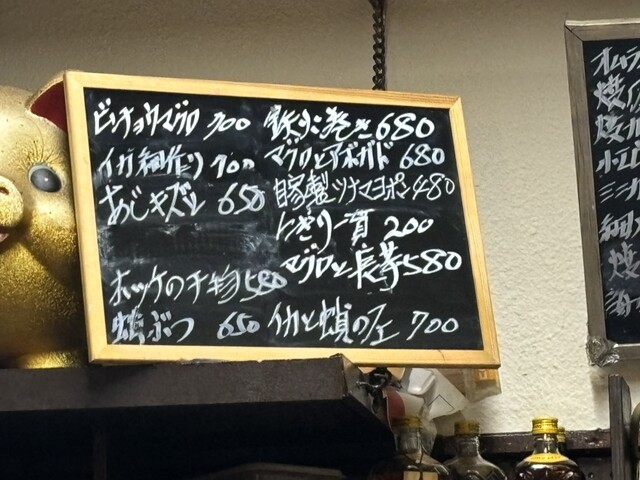 ビンチョウマグロ 700
イカ細作り 700
あじキズシ 650
ホッケの干物 580
蛸ぶつ 650
鉄火巻き 680
マグロとアボガド 680
自家製ツナマヨポン 480
にぎり一貫 200
マグロと長芋 580
イカと蛸の 700
オムラ
焼
焼